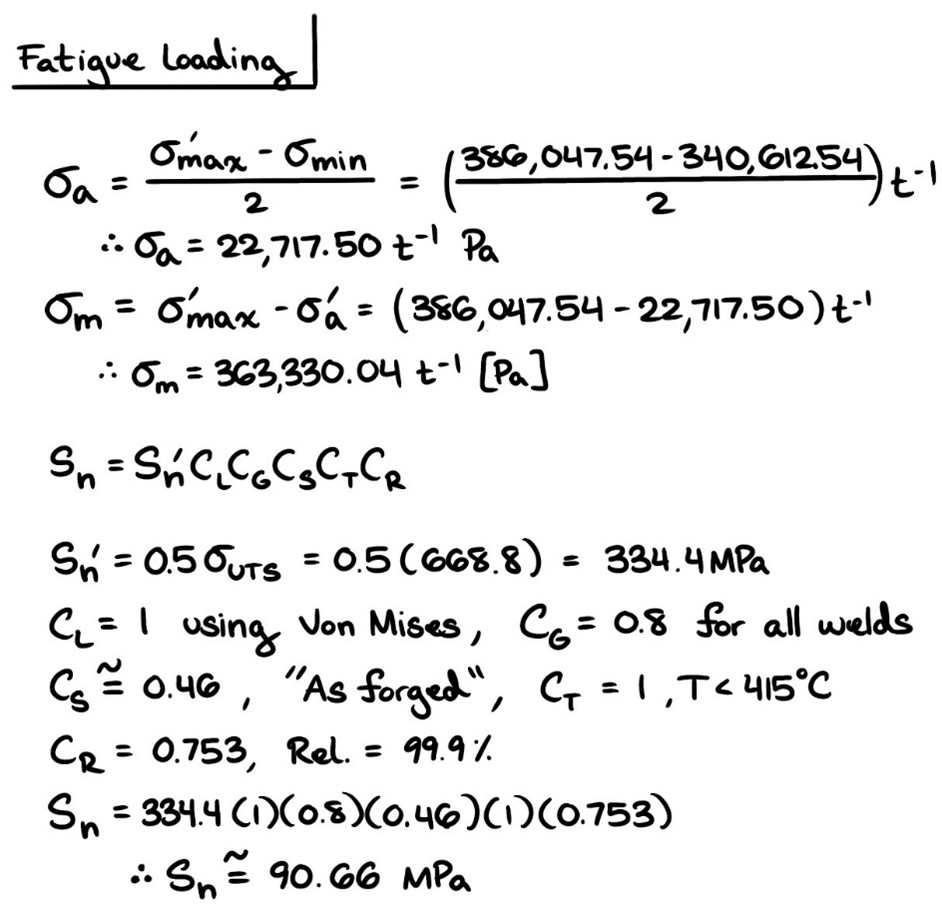 Fatigue Loading
σₐ = (σ′max - σmin)/2 = ((386,047.54 - 340,612.54)/2) t⁻¹
∴ σₐ = 22,717.50 t⁻¹ Pa
σₘ = σ′max - σ′ₐ = (386,047.54 - 22,717.50) t⁻¹
∴ σₘ = 363,330.04 t⁻¹ [Pa]
Sₙ = Sₙ′ C_L C_G C_S C_T C_R
Sₙ′ = 0.5 σ_UTS = 0.5 (668.8) = 334.4 MPa
C_L = 1 using Von Mises, C_G = 0.8 for all welds
C_S ≅ 0.46, "As forged", C_T = 1, T < 415°C
C_R = 0.753, Rel. = 99.9%
Sₙ = 334.4 (1)(0.8)(0.46)(1)(0.753)
∴ Sₙ ≅ 90.66 MPa